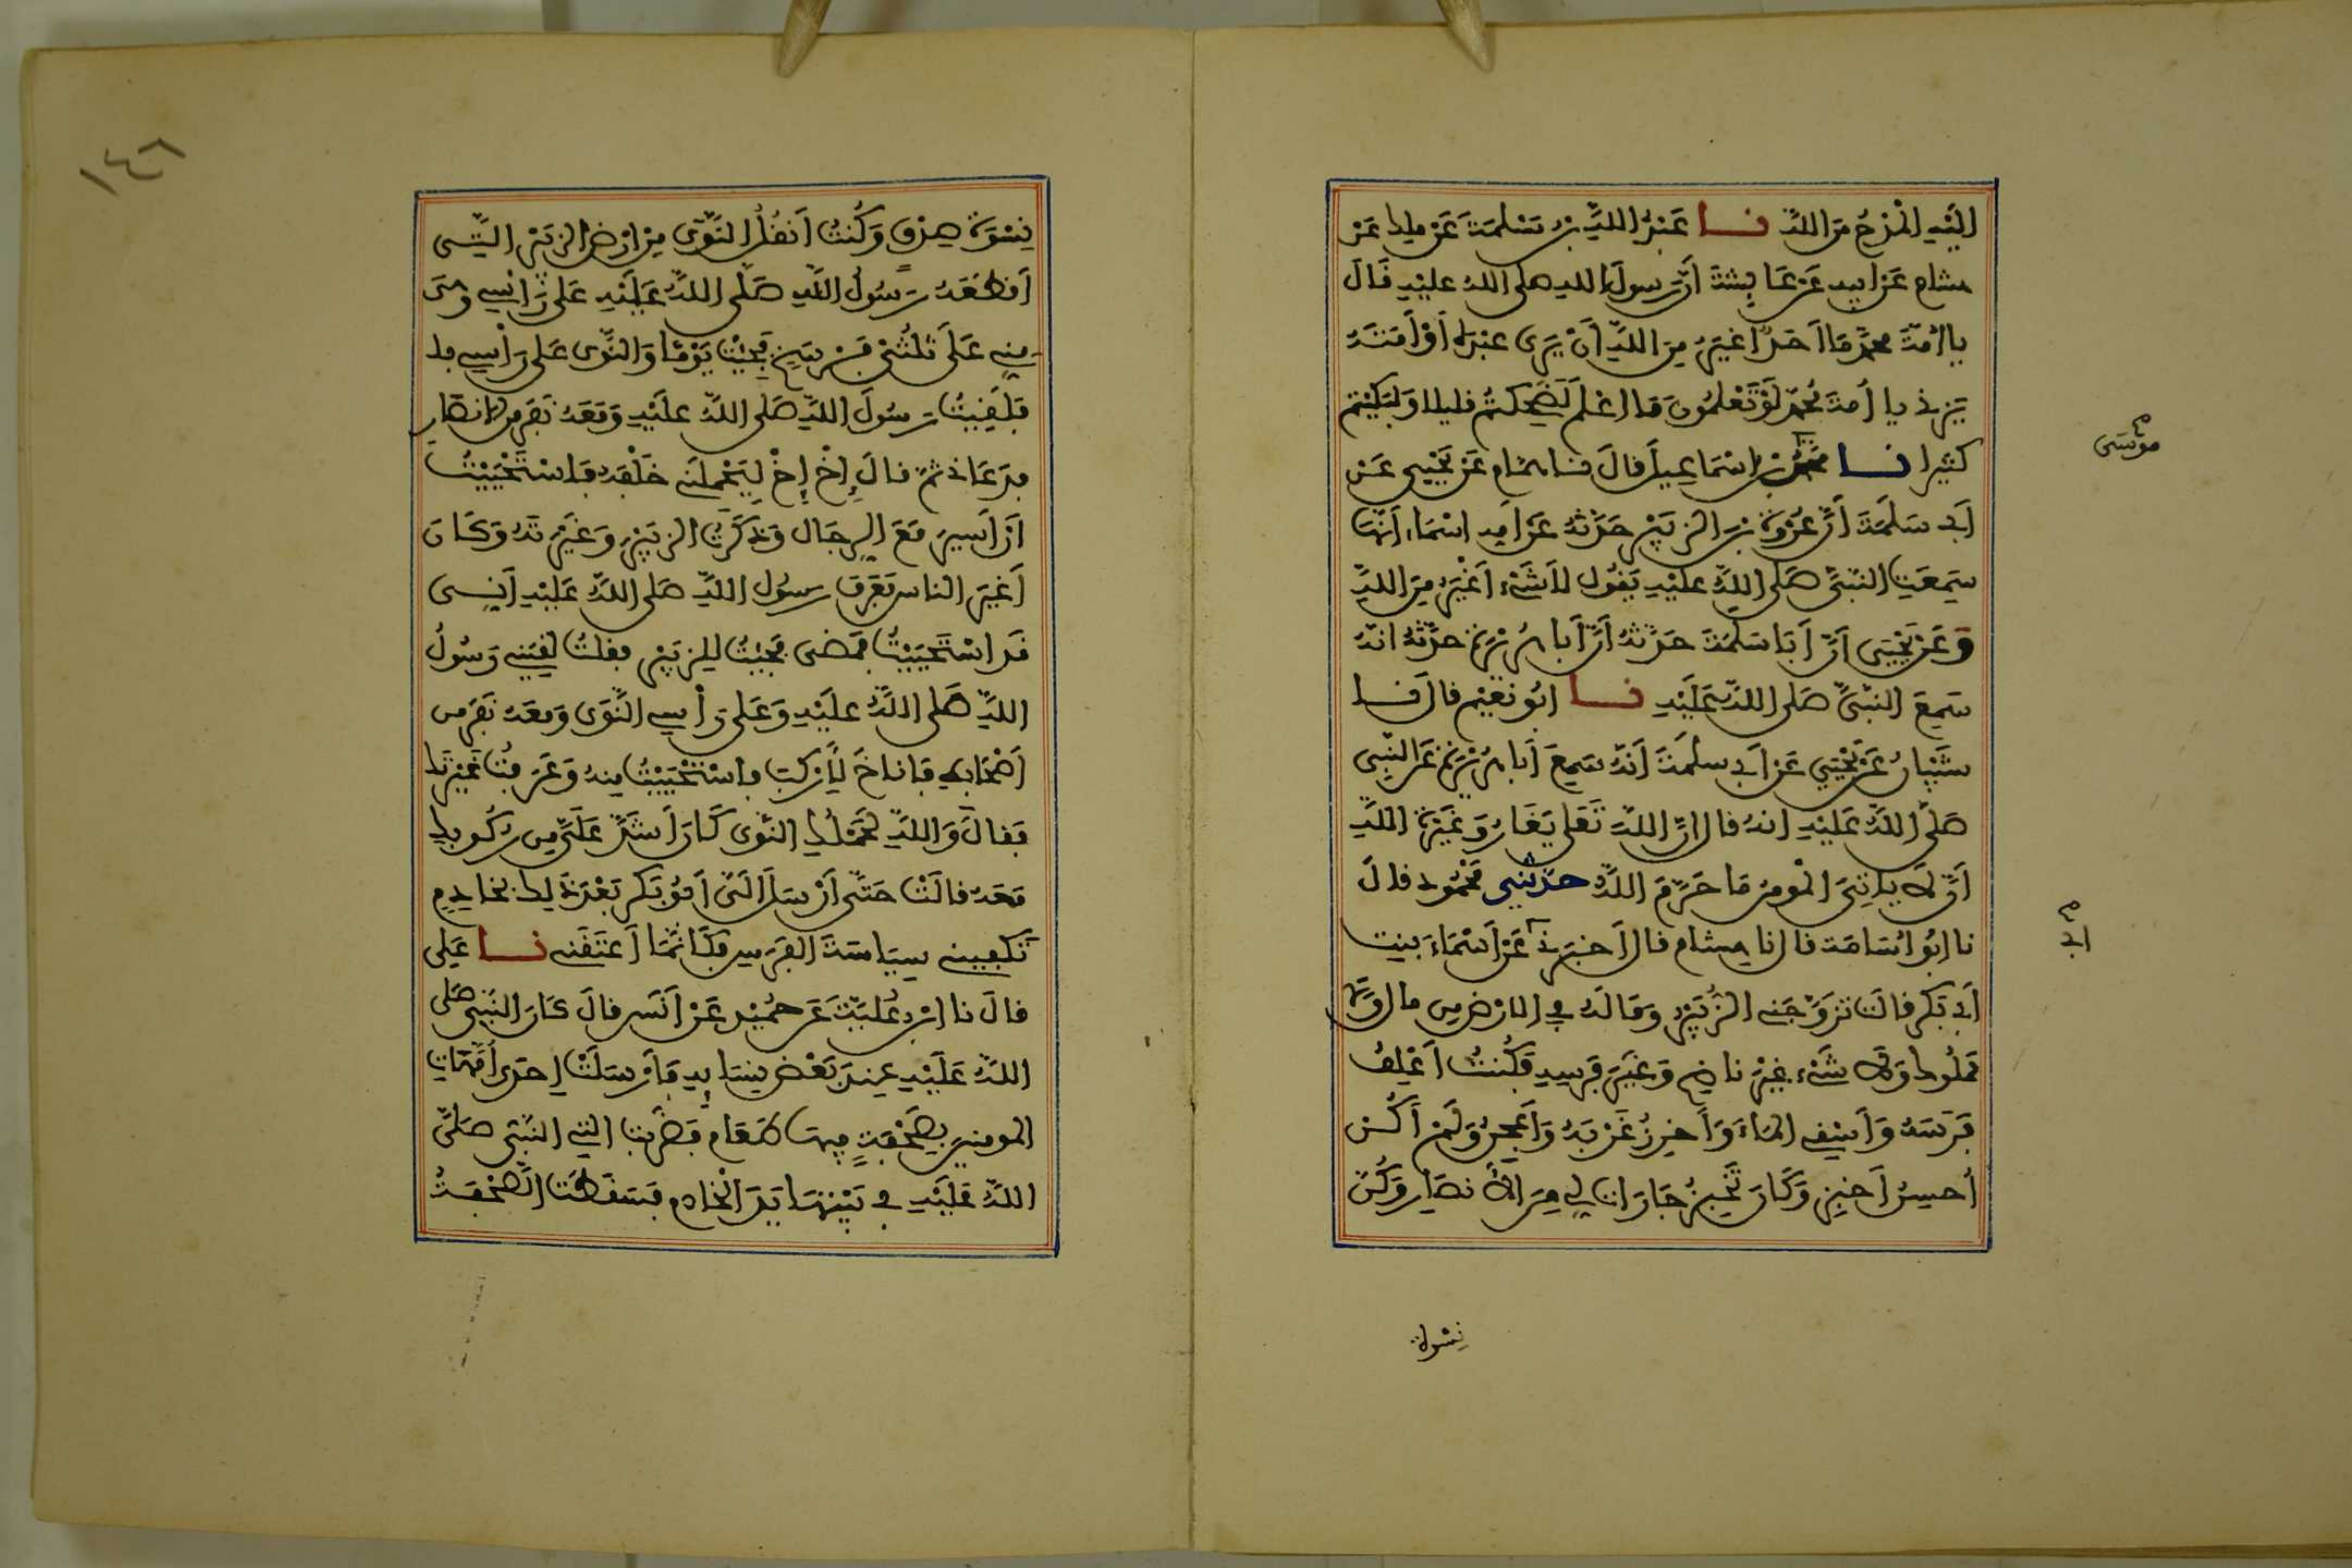 اليه المدح من الله نا عبد الله بن مسلمة عن ملك عن
هشام عن ابيه عن عايشة أن رسول الله صلى الله عليه قال
يا أمة محمد ما احد أغير من الله أن يرى عبده أو أمته
يزني يا أمة محمد لو تعلمون ما اعلم لضحكتم قليلا ولبكيتم
كثيرا نا اسماعيل قال نا همام عن يحيى عن
موسى
أبي سلمة أن عروة بن الزبير حدثه عن أمه اسماء أنها
سمعت النبي صلى الله عليه يقول لا شيء أغير من الله
وعن يحيى أن أبا سلمة حدثه أن أبا هريرة حدثه انه
سمع النبي صلى الله عليه نا ابو نعيم قال نا
شيبان عن يحيى عن أبي سلمة أنه سمع أبا هريرة عن النبي
صلى الله عليه انه قال إن الله تعلى يغار وغيرة الله
أن لا ياتي المومن ما حرم الله حدثني محمود قال
نا ابو اسامة قال نا هشام قال أخبرني عن أسماء بنت
ابي
أبي بكر قالت تزوجني الزبير وما له في الارض من مال ولا
مملوك ولا شيء غير ناضح وغير فرسه فكنت أعلف
فرسه وأستقي الماء وأخرز غربه وأعجن ولم أكن
أحسن أخبز وكان تخبز جارات لي من الأنصار وكن
نسوة
١٤٦
نسوة صدق وكنت أنقل النوى من ارض الزبير التي
أقطعه رسول الله صلى الله عليه على رأسي وهي
مني على ثلثي فرسخ فجيت يوما والنوى على رأسي
فلقيت رسول الله صلى الله عليه ومعه نفر من الانصار
فدعاني ثم قال إخ إخ ليحملني خلفه فاستحييت
أن أسير مع الرجال وذكرت الزبير وغيرته وكان
أغير الناس فعرف رسول الله صلى الله عليه أني
قد استحييت فمضى فجيت للزبير فقلت لقيني رسول
الله صلى الله عليه وعلى رأسي النوى ومعه نفر من
أصحابه فاناخ لأركب فاستحييت منه وعرفت غيرتك
فقال والله لحملك النوى كان أشد علي من ركوبك
معه قالت حتى أرسل الي أبو بكر بعد ذلك بخادم
تكفيني سياسة الفرس فكانما أعتقني نا علي
قال نا ابن علية عن حميد عن أنس قال كان النبي صلى
الله عليه عند بعض نسايه فأرسلت إحدى أمهات
المومنين بصحفة فيها طعام فضربت التي النبي صلى
الله عليه في بيتها يد الخادم فسقطت الصحفة